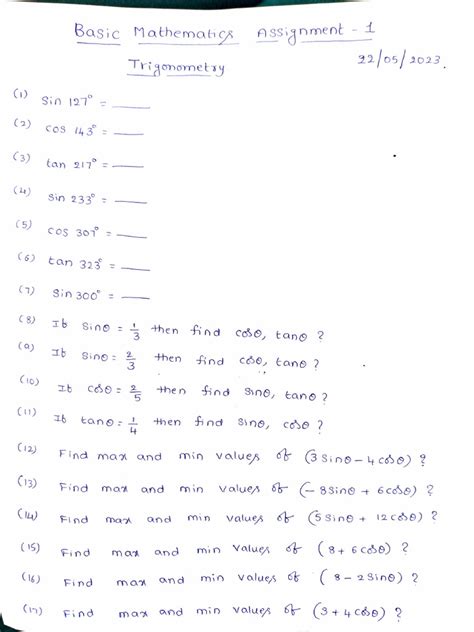 Basic Mathematics Assignment - 1
22/05/2023.
Trigonometry
(1) sin 127° = ___
(2) cos 143° = ___
(3) tan 217° = ___
(4) sin 233° = ___
(5) cos 307° = ___
(6) tan 323° = ___
(7) Sin 300° = ___
(8) If sinθ = 1/3 then find cosθ, tanθ ?
(9) If sinθ = 2/3 then find cosθ, tanθ ?
(10) If cosθ = 2/5 then find sinθ, tanθ ?
(11) If tanθ = 1/4 then find sinθ, cosθ ?
(12) Find max and min values of (3 sinθ - 4 cosθ) ?
(13) Find max and min values of (- 8 sinθ + 6 cosθ) ?
(14) Find max and min values of (5 sinθ + 12 cosθ) ?
(15) Find max and min values of (8 + 6 cosθ) ?
(16) Find max and min values of (8 - 2 sinθ) ?
(17) Find max and min values of (3 + 4 cosθ) ?